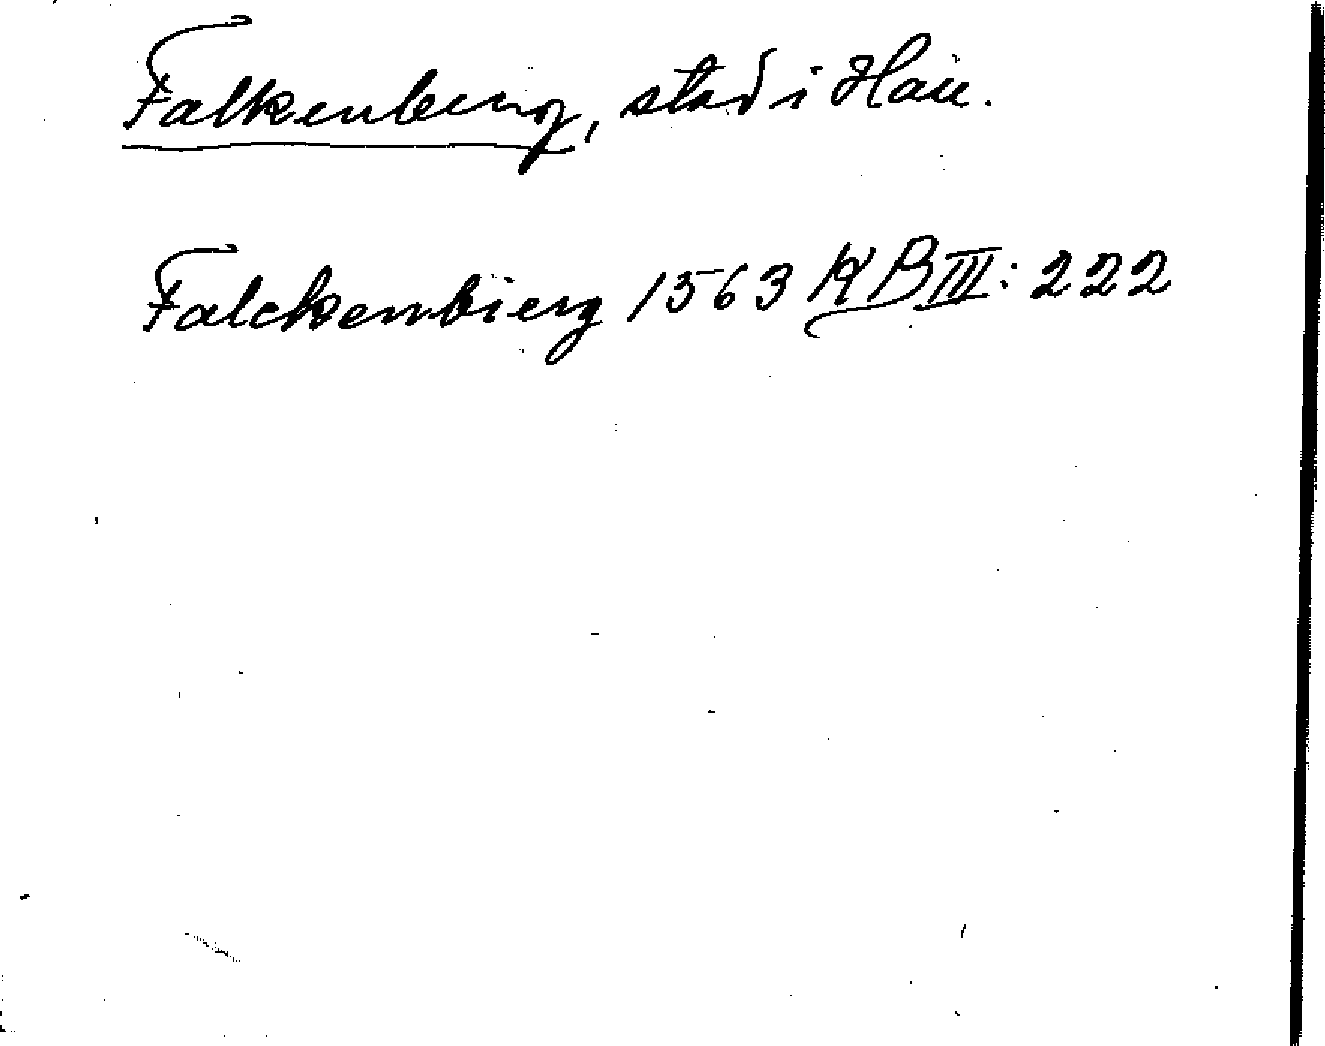 Falkenberg, stad i Hall.
Falckenbierg 1563 KB III: 222